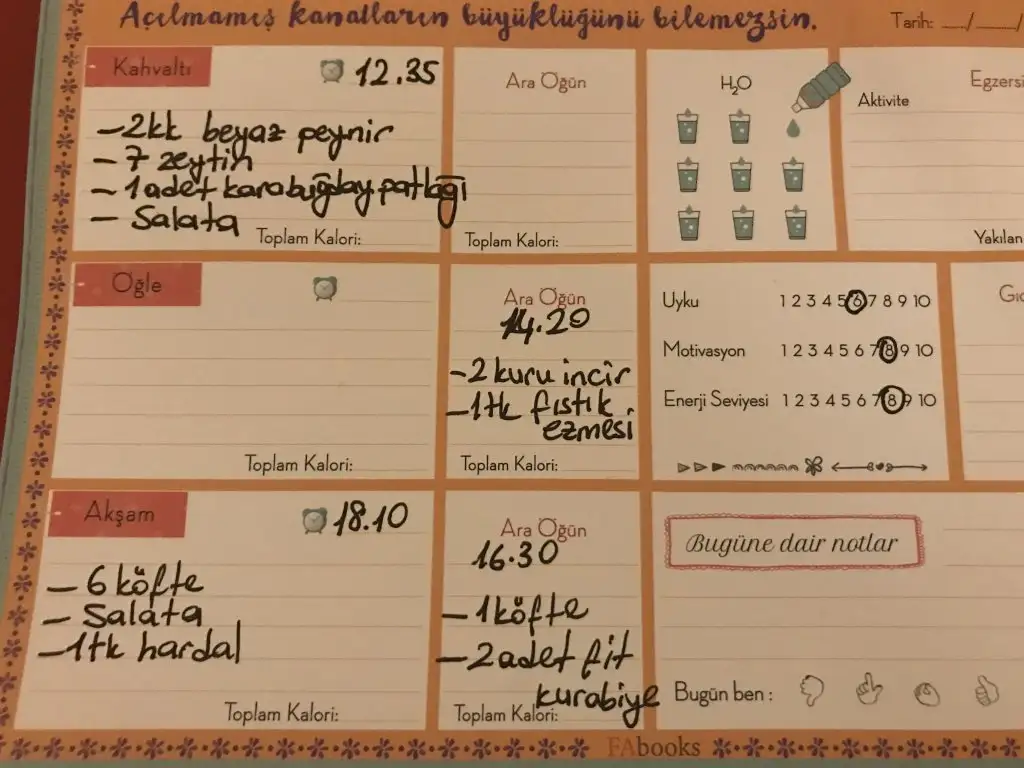 Açılmamış kanatların büyüklüğünü bilemezsin.
Tarih: __/___/
Kahvaltı 12.35
-2kk beyaz peynir
- 7 zeytin
- 1 adet karabuğday patlağı
- Salata
Toplam Kalori:
Ara Öğün
Toplam Kalori:
H₂O
Egzersi
Aktivite
Yakılan
Öğle
Toplam Kalori:
Ara Öğün
14.20
-2 kuru incir
-1tk fıstık
ezmesi
Toplam Kalori:
Uyku 1 2 3 4 5 6 7 8 9 10
Motivasyon 1 2 3 4 5 6 7 8 9 10
Enerji Seviyesi 1 2 3 4 5 6 7 8 9 10
Akşam 18.10
- 6 köfte
- Salata
-1tk hardal
Toplam Kalori:
Ara Öğün
16.30
-1 köfte
-2 adet fit
kurabiye
Toplam Kalori:
Bugüne dair notlar
Bugün ben :
FAbooks